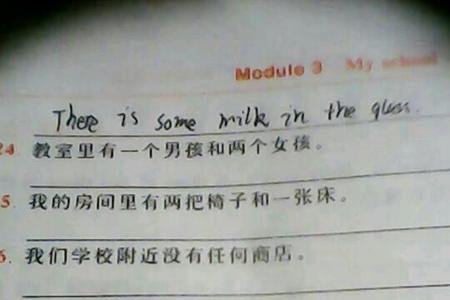 Module 3 My school
There is some milk in the glass.
24. 教室里有一个男孩和两个女孩。
5. 我的房间里有两把椅子和一张床。
6. 我们学校附近没有任何商店。